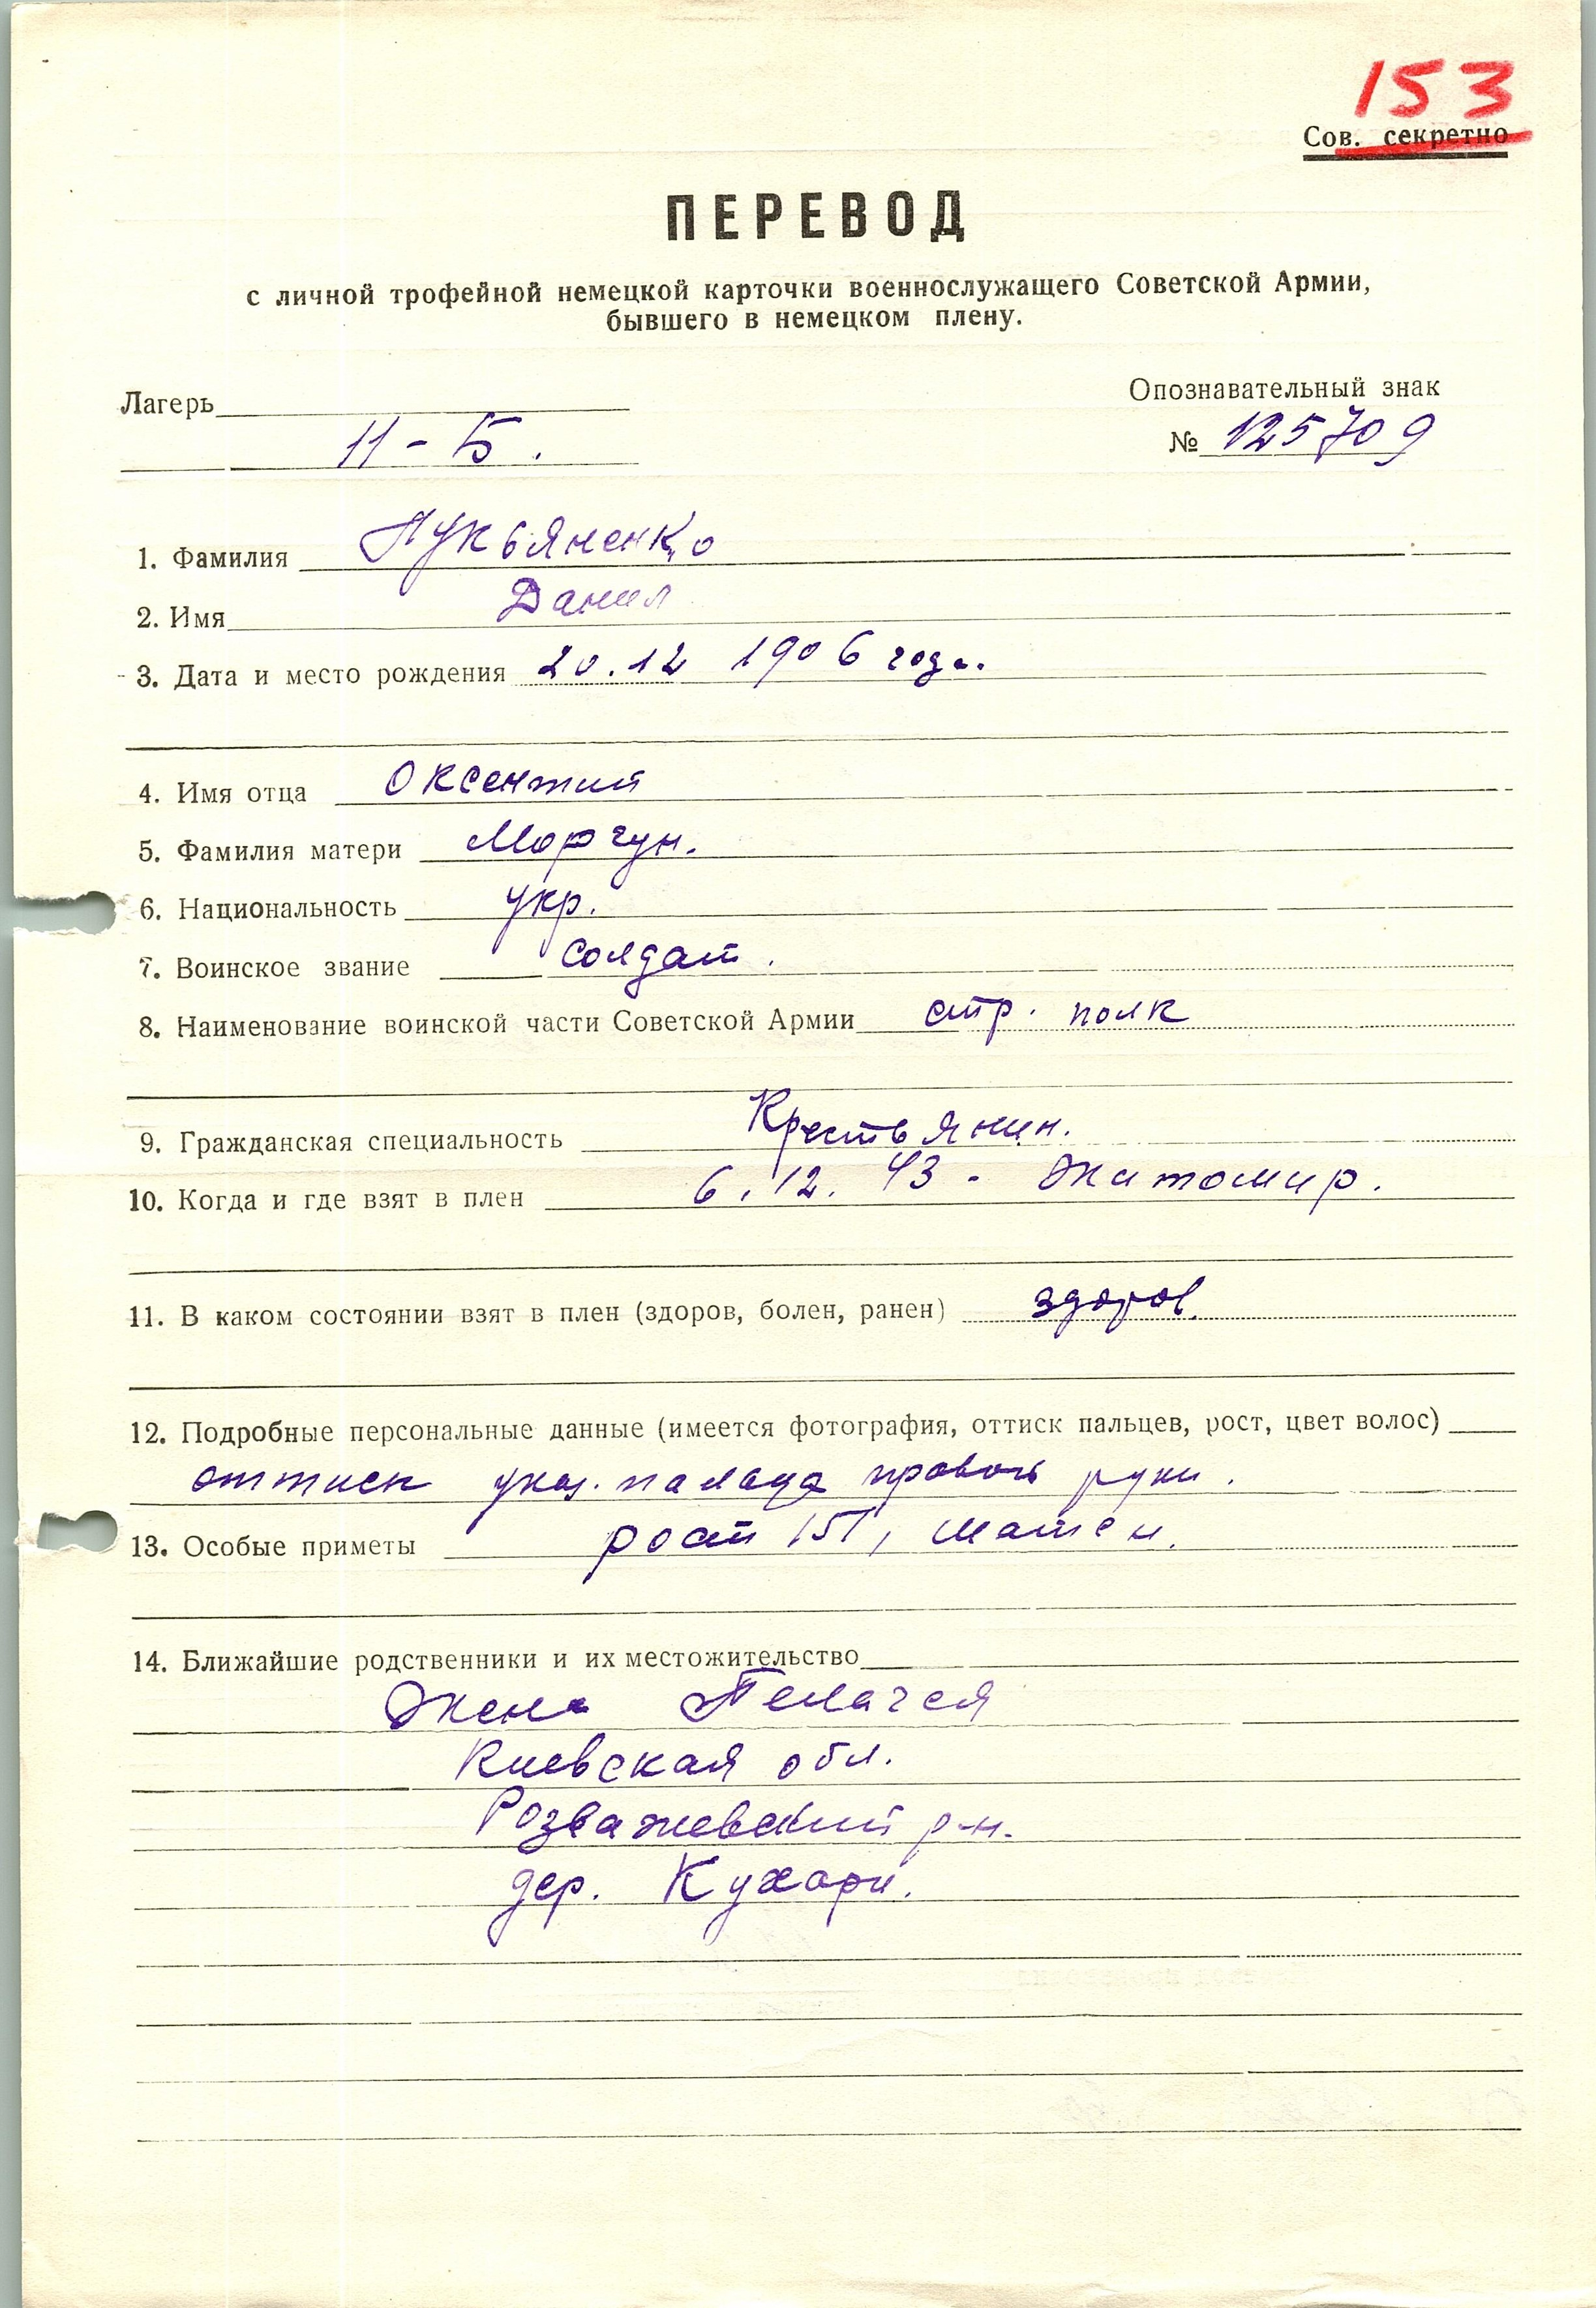 153
Сов. секретно
ПЕРЕВОД
с личной трофейной немецкой карточки военнослужащего Советской Армии,
бывшего в немецком плену.
Лагерь
Опознавательный знак
11 - Б.
№ 125709
1. Фамилия Лукьяненко
2. Имя Данил
3. Дата и место рождения 20.12 1906 года.
4. Имя отца Оксентий
5. Фамилия матери Моргун.
6. Национальность укр.
7. Воинское звание солдат.
8. Наименование воинской части Советской Армии стр. полк
9. Гражданская специальность Крестьянин.
10. Когда и где взят в плен 6.12.43 - Житомир.
11. В каком состоянии взят в плен (здоров, болен, ранен) здоров.
12. Подробные персональные данные (имеется фотография, оттиск пальцев, рост, цвет волос)
оттиск указ. пальца правой руки.
13. Особые приметы рост 151,
14. Ближайшие родственники и их местожительство
Жена Пелагея
Киевская обл.
Розважевский р-н.
дер. Кухари.